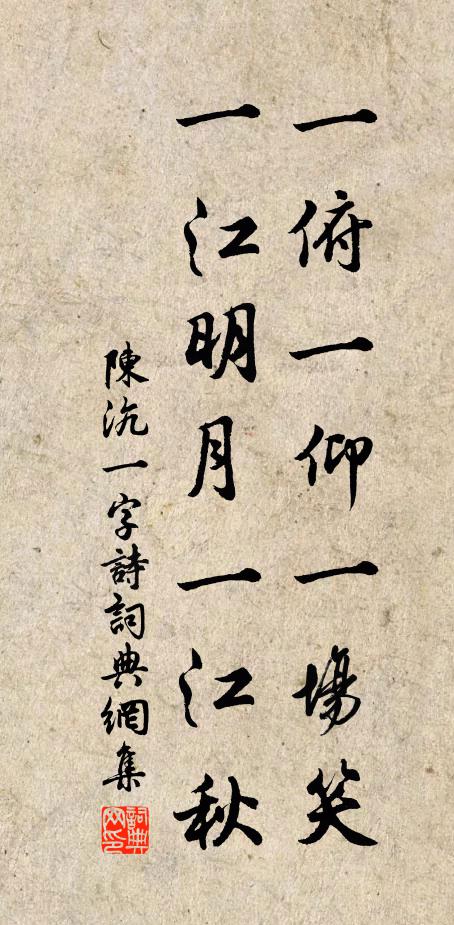 一俯一仰一場笑
一江明月一江秋
陳沆一字詩詞典網集
詞典網印